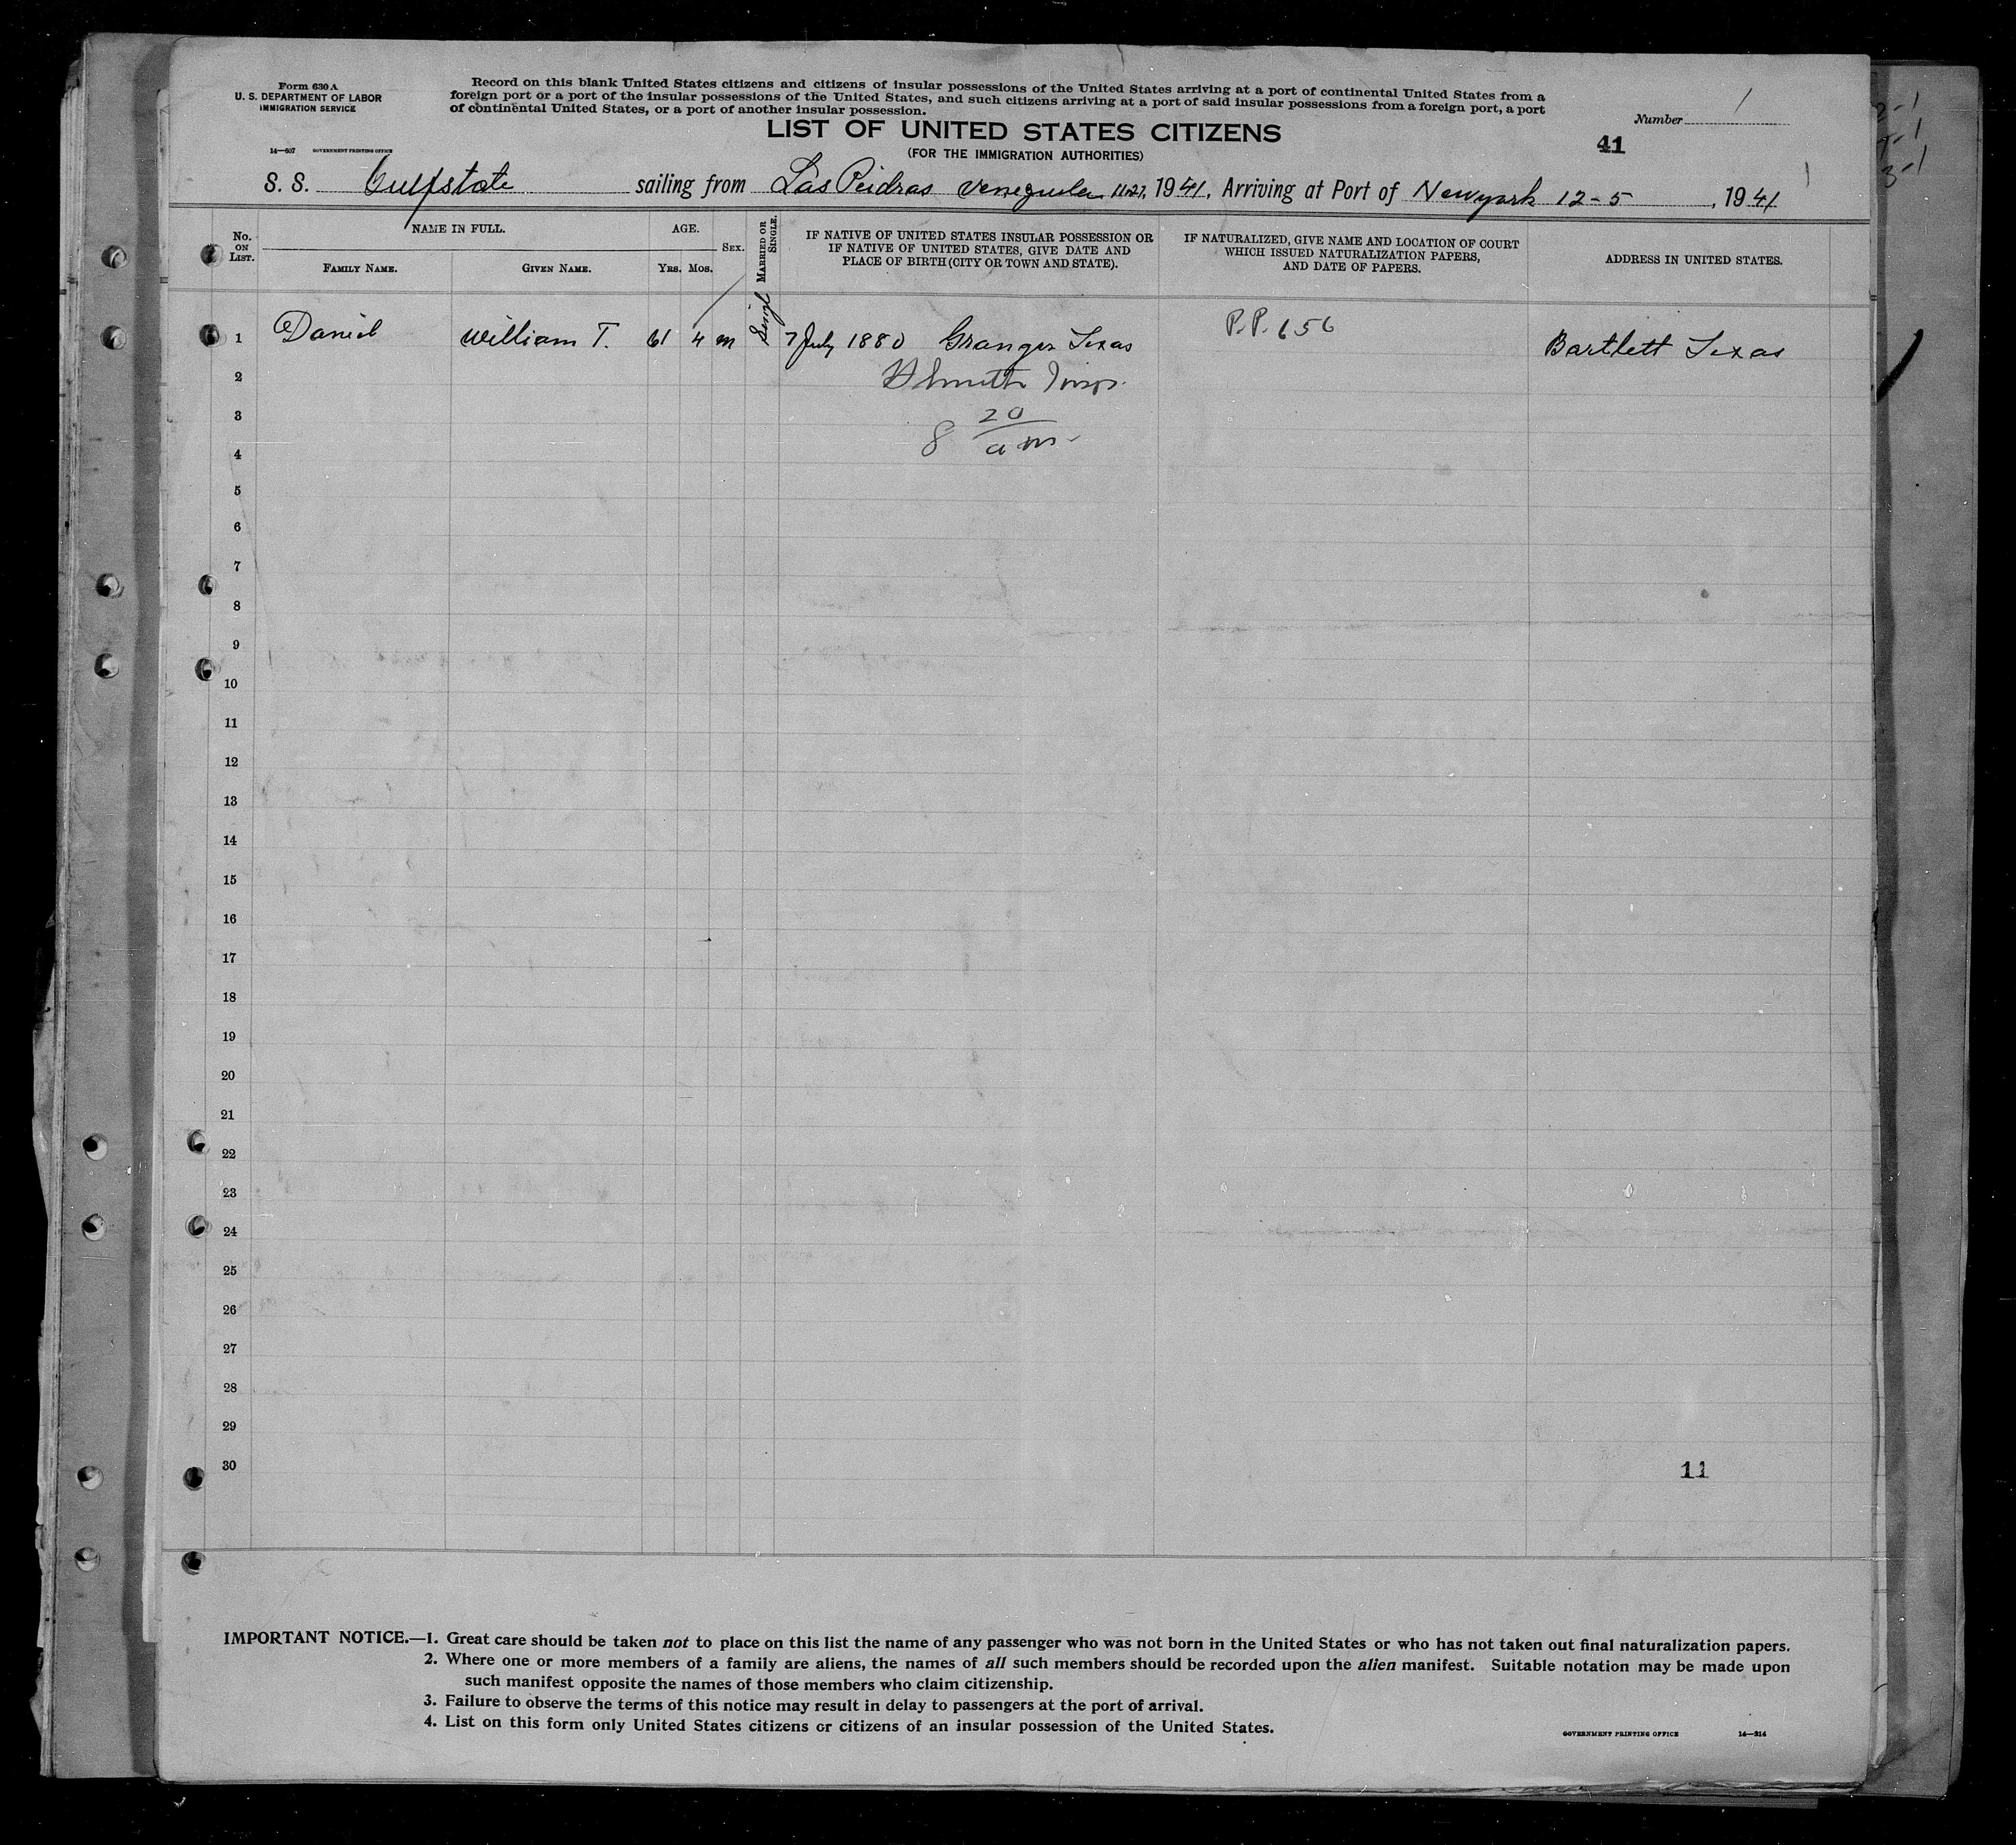 Form 630 A
U. S. DEPARTMENT OF LABOR
IMMIGRATION SERVICE
Record on this blank United States citizens and citizens of insular possessions of the United States arriving at a port of continental United States from a
foreign port or a port of the insular possessions of the United States, and such citizens arriving at a port of said insular possessions from a foreign port, a port
of continental United States, or a port of another insular possession.
Number 1
LIST OF UNITED STATES CITIZENS
41
(FOR THE IMMIGRATION AUTHORITIES)
14—687 GOVERNMENT PRINTING OFFICE
S. S. Gulfstate sailing from Las Peidras Venezuela 11-27, 1941, Arriving at Port of Newyork 12-5, 1941
No. ON LIST.
NAME IN FULL.
FAMILY NAME. GIVEN NAME.
AGE.
YRS. MOS.
SEX.
MARRIED OR SINGLE.
IF NATIVE OF UNITED STATES INSULAR POSSESSION OR
IF NATIVE OF UNITED STATES, GIVE DATE AND
PLACE OF BIRTH (CITY OR TOWN AND STATE).
IF NATURALIZED, GIVE NAME AND LOCATION OF COURT
WHICH ISSUED NATURALIZATION PAPERS,
AND DATE OF PAPERS.
ADDRESS IN UNITED STATES.
1 Daniel William T. 61 4 m Singl 7 July 1880 Granger Texas P.P. 656 Bartlett Texas
2
3 20
4 8 am
5
6
7
8
9
10
11
12
13
14
15
16
17
18
19
20
21
22
23
24
25
26
27
28
29
30
11
IMPORTANT NOTICE.—1. Great care should be taken not to place on this list the name of any passenger who was not born in the United States or who has not taken out final naturalization papers.
2. Where one or more members of a family are aliens, the names of all such members should be recorded upon the alien manifest. Suitable notation may be made upon
such manifest opposite the names of those members who claim citizenship.
3. Failure to observe the terms of this notice may result in delay to passengers at the port of arrival.
4. List on this form only United States citizens or citizens of an insular possession of the United States.
GOVERNMENT PRINTING OFFICE 14—314